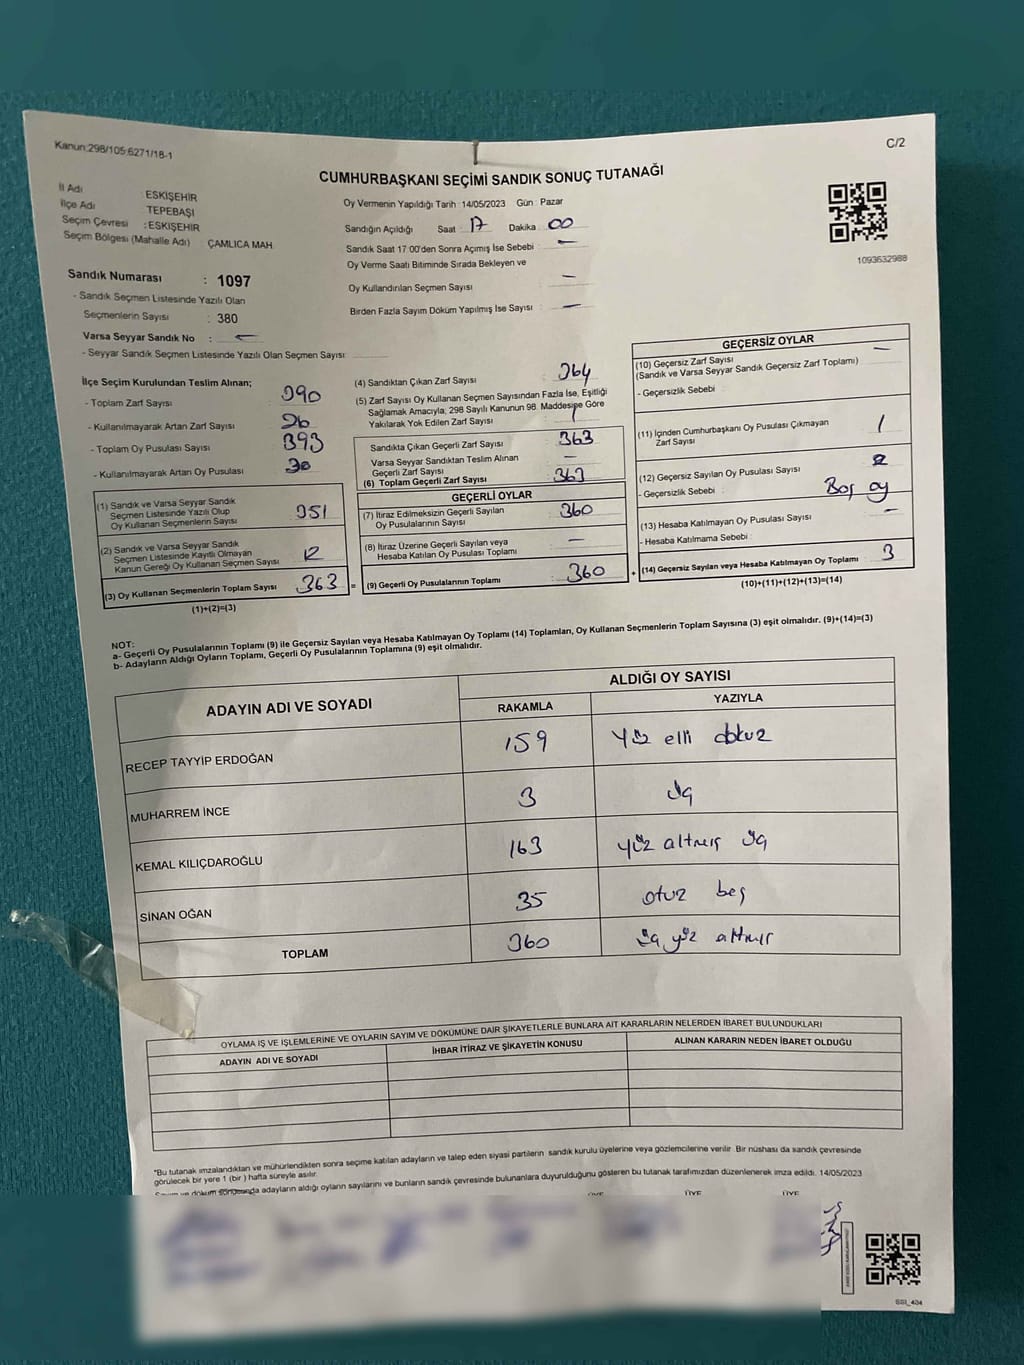 Kanun:298/105;6271/18-1
C/2
CUMHURBAŞKANI SEÇİMİ SANDIK SONUÇ TUTANAĞI
İl Adı ESKİŞEHİR
İlçe Adı TEPEBAŞI
Seçim Çevresi : ESKİŞEHİR
Seçim Bölgesi (Mahalle Adı) ÇAMLICA MAH.
Oy Vermenin Yapıldığı Tarih : 14/05/2023 Gün : Pazar
Sandığın Açıldığı Saat : 17 Dakika : 00
Sandık Saat 17:00'den Sonra Açımış İse Sebebi : —
Oy Verme Saati Bitiminde Sırada Bekleyen ve
Oy Kullandırılan Seçmen Sayısı : —
Birden Fazla Sayım Döküm Yapılmış İse Sayısı : —
1093632988
Sandık Numarası : 1097
- Sandık Seçmen Listesinde Yazılı Olan
Seçmenlerin Sayısı : 380
Varsa Seyyar Sandık No : —
- Seyyar Sandık Seçmen Listesinde Yazılı Olan Seçmen Sayısı:
İlçe Seçim Kurulundan Teslim Alınan;
- Toplam Zarf Sayısı : 390
- Kullanılmayarak Artan Zarf Sayısı : 26
- Toplam Oy Pusulası Sayısı : 393
- Kullanılmayarak Artan Oy Pusulası : 30
(1) Sandık ve Varsa Seyyar Sandık
Seçmen Listesinde Yazılı Olup
Oy Kullanan Seçmenlerin Sayısı : 351
(2) Sandık ve Varsa Seyyar Sandık
Seçmen Listesinde Kayıtlı Olmayan
Kanun Gereği Oy Kullanan Seçmen Sayısı : 12
(3) Oy Kullanan Seçmenlerin Toplam Sayısı : 363
(1)+(2)=(3)
(4) Sandıktan Çıkan Zarf Sayısı : 364
(5) Zarf Sayısı Oy Kullanan Seçmen Sayısından Fazla İse, Eşitliği
Sağlamak Amacıyla; 298 Sayılı Kanunun 98. Maddesine Göre
Yakılarak Yok Edilen Zarf Sayısı : 1
Sandıkta Çıkan Geçerli Zarf Sayısı : 363
Varsa Seyyar Sandıktan Teslim Alınan
Geçerli Zarf Sayısı : —
(6) Toplam Geçerli Zarf Sayısı : 363
GEÇERLİ OYLAR
(7) İtiraz Edilmeksizin Geçerli Sayılan
Oy Pusulalarının Sayısı : 360
(8) İtiraz Üzerine Geçerli Sayılan veya
Hesaba Katılan Oy Pusulası Toplamı : —
= (9) Geçerli Oy Pusulalarının Toplamı : 360
GEÇERSİZ OYLAR
(10) Geçersiz Zarf Sayısı : —
(Sandık ve Varsa Seyyar Sandık Geçersiz Zarf Toplamı)
- Geçersizlik Sebebi :
(11) İçinden Cumhurbaşkanı Oy Pusulası Çıkmayan
Zarf Sayısı : 1
(12) Geçersiz Sayılan Oy Pusulası Sayısı : 2
- Geçersizlik Sebebi : Boş oy
(13) Hesaba Katılmayan Oy Pusulası Sayısı : —
- Hesaba Katılmama Sebebi :
+ (14) Geçersiz Sayılan veya Hesaba Katılmayan Oy Toplamı : 3
(10)+(11)+(12)+(13)=(14)
NOT:
a- Geçerli Oy Pusulalarının Toplamı (9) ile Geçersiz Sayılan veya Hesaba Katılmayan Oy Toplamı (14) Toplamları, Oy Kullanan Seçmenlerin Toplam Sayısına (3) eşit olmalıdır. (9)+(14)=(3)
b- Adayların Aldığı Oyların Toplamı, Geçerli Oy Pusulalarının Toplamına (9) eşit olmalıdır.
ADAYIN ADI VE SOYADI
ALDIĞI OY SAYISI
RAKAMLA YAZIYLA
RECEP TAYYİP ERDOĞAN 159 Yüz elli dokuz
MUHARREM İNCE 3 üç
KEMAL KILIÇDAROĞLU 163 yüz altmış üç
SİNAN OĞAN 35 otuz beş
TOPLAM 360 üç yüz altmış
OYLAMA İŞ VE İŞLEMLERİNE VE OYLARIN SAYIM VE DÖKÜMÜNE DAİR ŞİKAYETLERLE BUNLARA AİT KARARLARIN NELERDEN İBARET BULUNDUKLARI
ADAYIN ADI VE SOYADI İHBAR İTİRAZ VE ŞİKAYETİN KONUSU ALINAN KARARIN NEDEN İBARET OLDUĞU
*Bu tutanak imzalandıktan ve mühürlendikten sonra seçime katılan adayların ve talep eden siyasi partilerin sandık kurulu üyelerine veya gözlemcilerine verilir. Bir nüshası da sandık çevresinde
görülecek bir yere 1 (bir) hafta süreyle asılır.
Sayım ve döküm sonucunda adayların aldığı oyların sayılarını ve bunların sandık çevresinde bulunanlara duyurulduğunu gösteren bu tutanak tarafımızdan düzenlenerek imza edildi. 14/05/2023
ÜYE ÜYE ÜYE
SSI_404